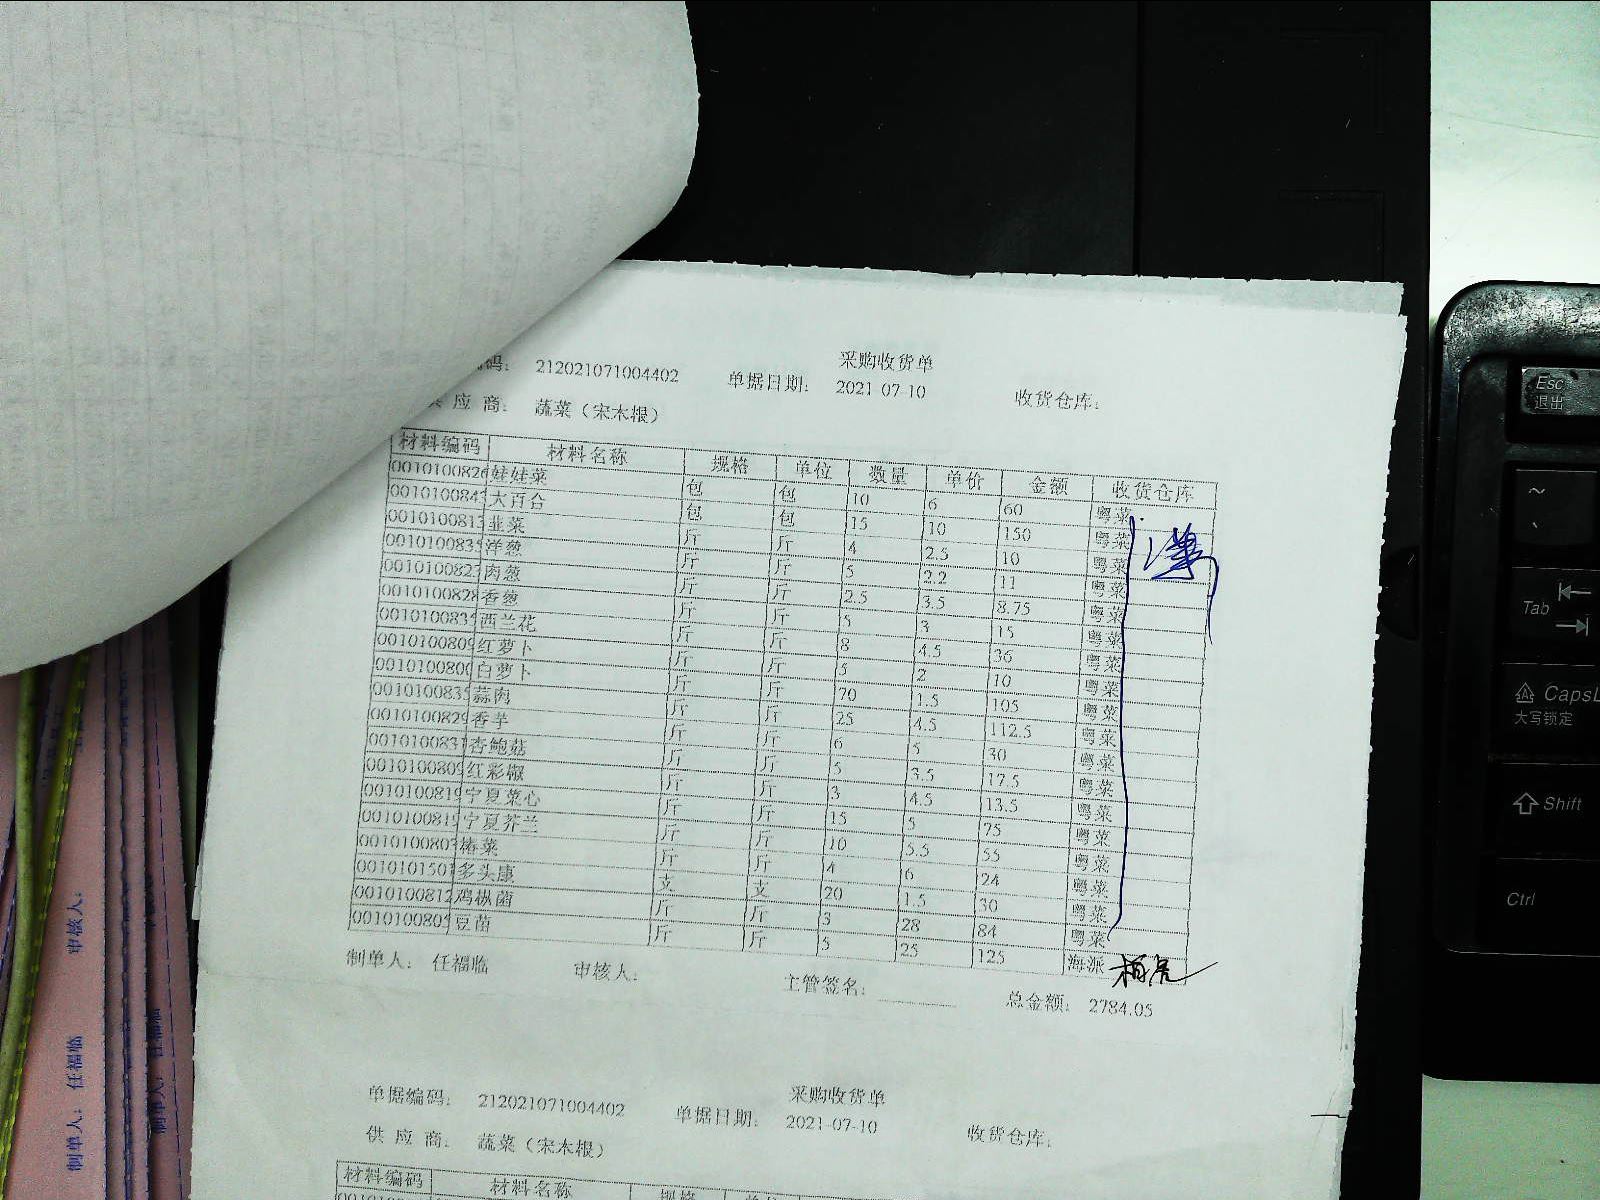 采购收货单
码： 212021071004402 单据日期： 2021-07-10 收货仓库：
供 应 商： 蔬菜（宋木根）
材料编码 材料名称 规格 单位 数量 单价 金额 收货仓库
0010100826 娃娃菜 包 包 10 6 60 粤菜
001010084 大百合 包 包 15 10 150 粤菜
0010100813 韭菜 斤 斤 4 2.5 10 粤菜
001010083 洋葱 斤 斤 5 2.2 11 粤菜
001010082 肉葱 斤 斤 2.5 3.5 8.75 粤菜
0010100828 香葱 斤 斤 5 3 15 粤菜
001010083 西兰花 斤 斤 8 4.5 36 粤菜
0010100809 红萝卜 斤 斤 5 2 10 粤菜
001010080 白萝卜 斤 斤 70 1.5 105 粤菜
001010083 蒜肉 斤 斤 25 4.5 112.5 粤菜
0010100829 香芋 斤 斤 6 5 30 粤菜
001010083 杏鲍菇 斤 斤 5 3.5 17.5 粤菜
0010100809 红彩椒 斤 斤 3 4.5 13.5 粤菜
0010100819 宁夏菜心 斤 斤 15 5 75 粤菜
001010081 宁夏芥兰 斤 斤 10 5.5 55 粤菜
001010080 椿菜 斤 斤 4 6 24 粤菜
001010150 多头康 支 支 20 1.5 30 粤菜
0010100812 鸡枞菌 斤 斤 3 28 84 粤菜
001010080 豆苗 斤 斤 5 25 125 海派
制单人： 任福临 审核人： 主管签名： 总金额： 2784.05
采购收货单
单据编码： 212021071004402 单据日期： 2021-07-10 收货仓库：
供 应 商： 蔬菜（宋木根）
材料编码 材料名称 规格
审核人：
制单人： 任福临
制单人： 任福临
Esc
退出
~
Tab
CapsL
大写锁定
Shift
Ctrl